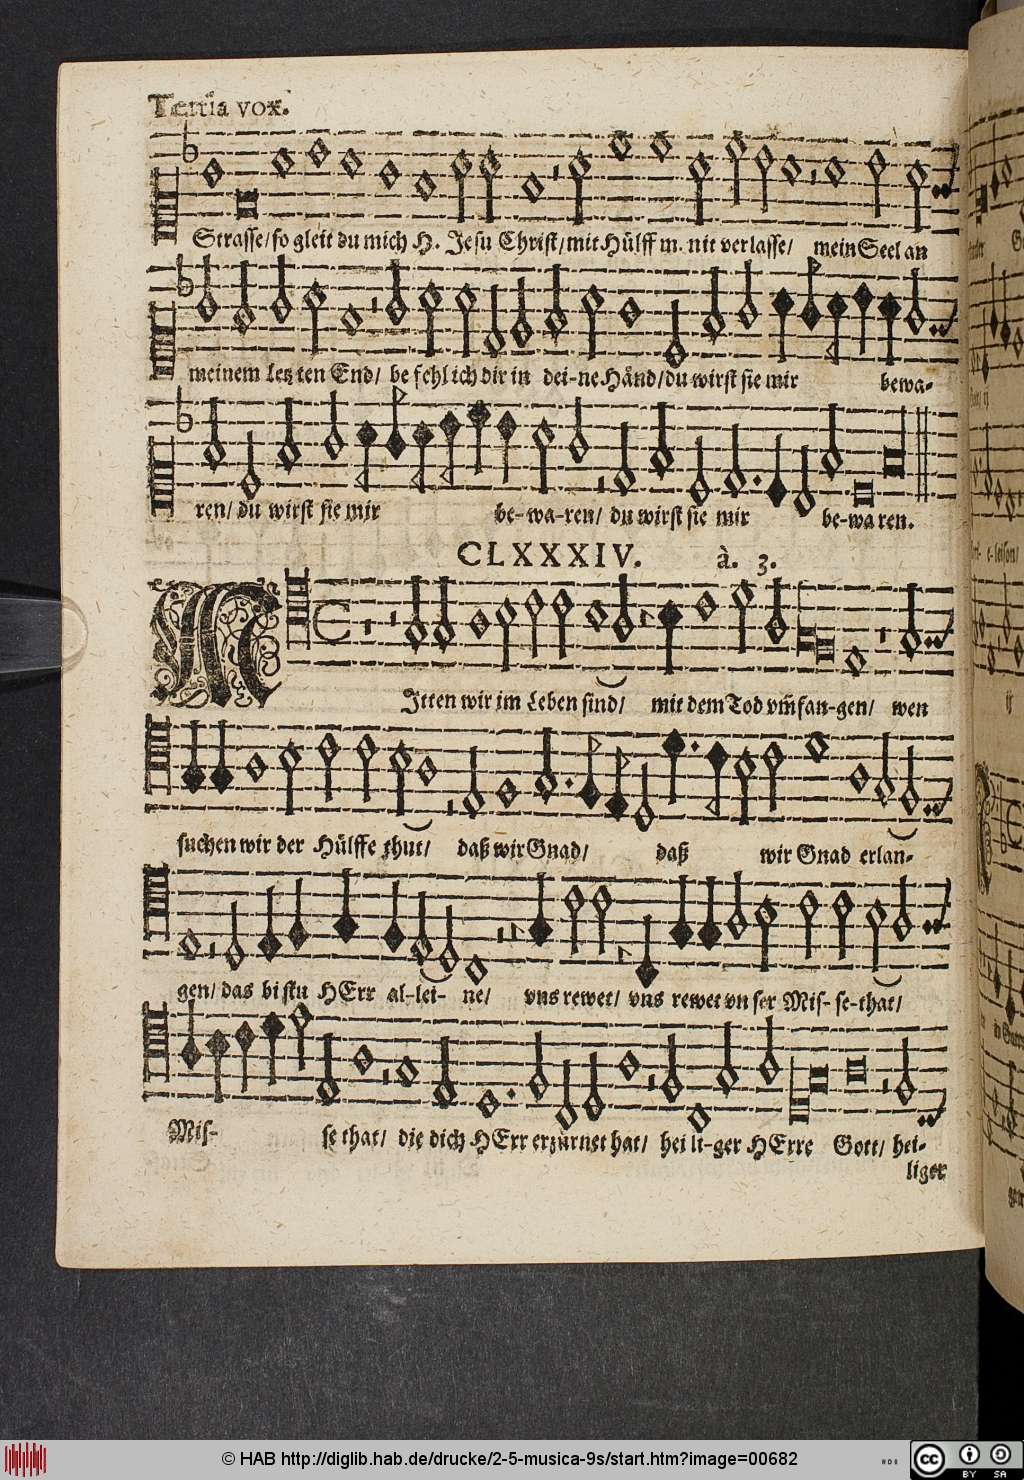 Tertia vox.
Strasse/ so gleit du mich H. Jesu Christ/ mit Hülff m. nit verlasse/ mein Seel an
meinem letzten End/ befehl ich dir in dei-ne Händ/ du wirst sie mir bewa-
ren/ du wirst sie mir be-wa-ren/ du wirst sie mir be-wa ren.
CLXXXIV. à. 3.
MItten wir im Leben sind/ mit dem Tod vm̃fan-gen/ wen
suchen wir der Hülffe thut/ daß wir Gnad/ daß wir Gnad erlan-
gen/ das bistu HErr al-lei- ne/ vns rewet/ vns rewet vnser Mis- se-that/
Mis- se that/ die dich HErr erzürnet hat/ hei li-ger HErre Gott/ hei-
liger
© HAB http://diglib.hab.de/drucke/2-5-musica-9s/start.htm?image=00682
cc
BY SA